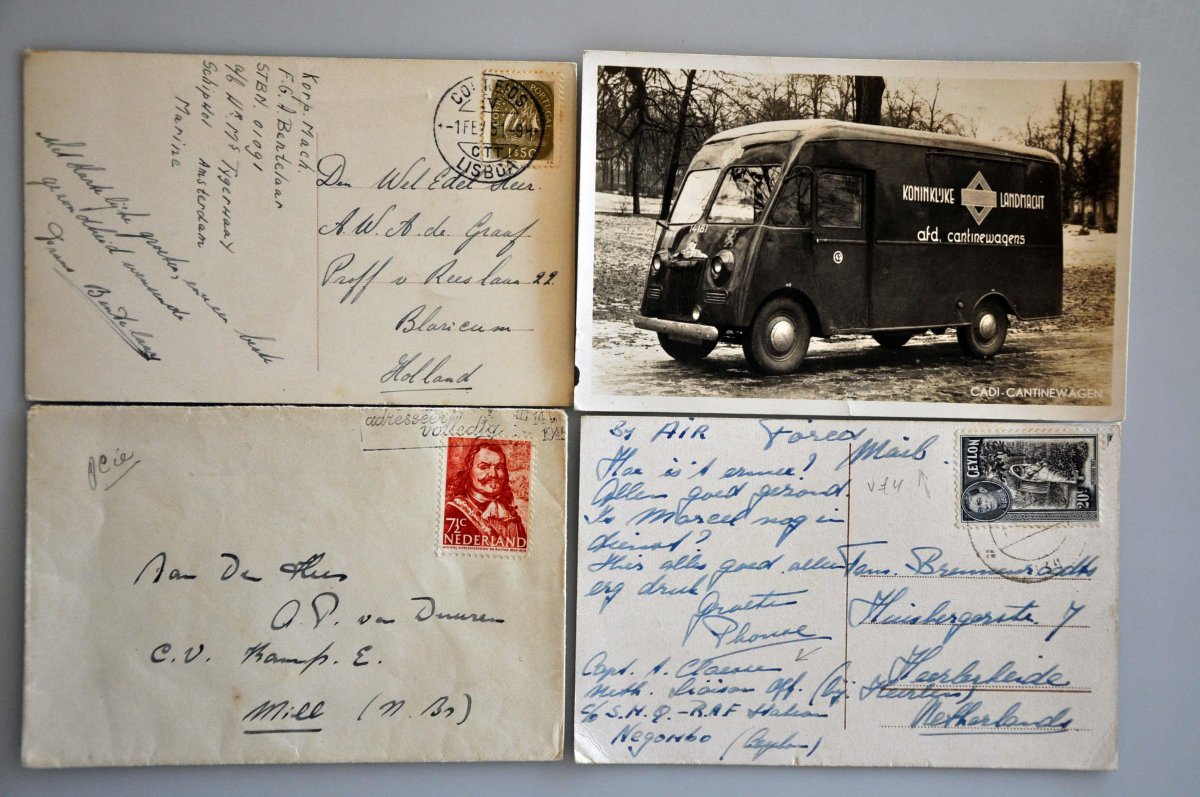 Korp. Mach.
F.G.A Bertelaar
STBN. 01091
a/b Hr Ms Tjgerhaax
Schiphol Amsterdam
Marine
Met Hartelijke groeten, en een beste
gezondheid wensende
Frans
CORREIOS
-1 FE
CTT
LISBOA
PORTUGAL
1$50
Den Wel Edel Heer
A. W. A. de Graaf
Proff v Rees laan 22
Blaricum
Holland
KONINKLIJKE LANDMACHT
afd. cantinewagens
43
CADI-CANTINEWAGEN
adresseer
volledig
7½c
NEDERLAND
Aan Den Heer
A. P. van Duuren
C. V. Kamp. E.
Mill (N. Br)
By AIR Mail
Hoe is 't ermee?
Allen goed gezond
Is Marcel nog in
dienst?
Hier alles goed. alleen
erg druk
Groeten
Capt. A.
Neth. Liaison Off.
c/o S.H.Q. - RAF Station
Negombo (Ceylon)
CEYLON
20
Fam.
7
Heerlerheide
Netherlands